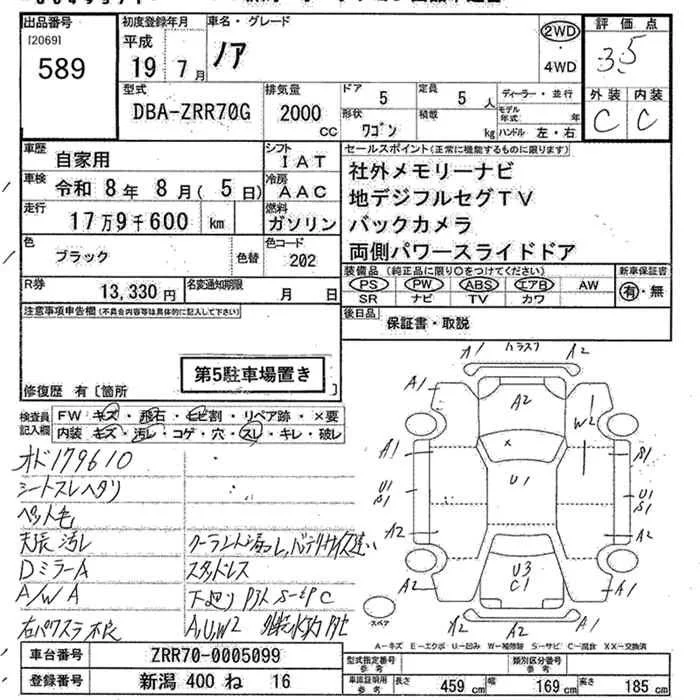 出品番号 初度登録年月 車名・グレード 評価点
[2069] 平成 ②WD 3.5
589 19年7月 ノア 4WD
型式 排気量 ドア 定員 ディーラー・並行 外装 内装
DBA-ZRR70G 2000cc 5 5人 モデル年式 年 C C
形状 ワゴン 積載 kg ハンドル 左・右
車歴 自家用 シフト IAT セールスポイント(正常に機能するものに限ります)
車検 令和8年8月(5日) 冷房 AAC 社外メモリーナビ
地デジフルセグTV
走行 17万9千600 km 燃料 ガソリン バックカメラ
色 ブラック 色替 色コード 202 両側パワースライドドア
装備品(純正品に限り○をつけてください) 新車保証書
R券 13,330円 名変通知期限 月 日 PS PW ABS エアB AW 有・無
SR ナビ TV カワ
注意事項申告欄(不具合内容等は具体的に記入して下さい) 後日品 保証書・取説
第5駐車場置き
修復歴 有〔箇所 〕
検査員記入欄 FW キズ・飛石・ヒビ割・リペア跡・×要
内装 キズ・汚レ・コゲ・穴・スレ・キレ・破レ
A1 A2
A2
A1 W2
A1 S1
U1 S1 U1 U1 S1
A2 A2
U3 C1
A2 A1
A2 A2
オド179610
シートスレヘタリ
ペット毛
天張汚レ クーラント漏れ、バッテリサイズ違い
DミラーA スタッドレス
A/W A 下廻り
右パワスラ不良 A,U,W2
スペア
A-キズ E-エクボ U-凹み W-補修跡 S-サビ C-腐食 XX-交換済
車台番号 ZRR70-0005099 型式指定番号 参考 類別区分番号 参考
登録番号 新潟 400 ね 16 車検証明用 参考 長さ 459cm 幅 169cm 高さ 185cm